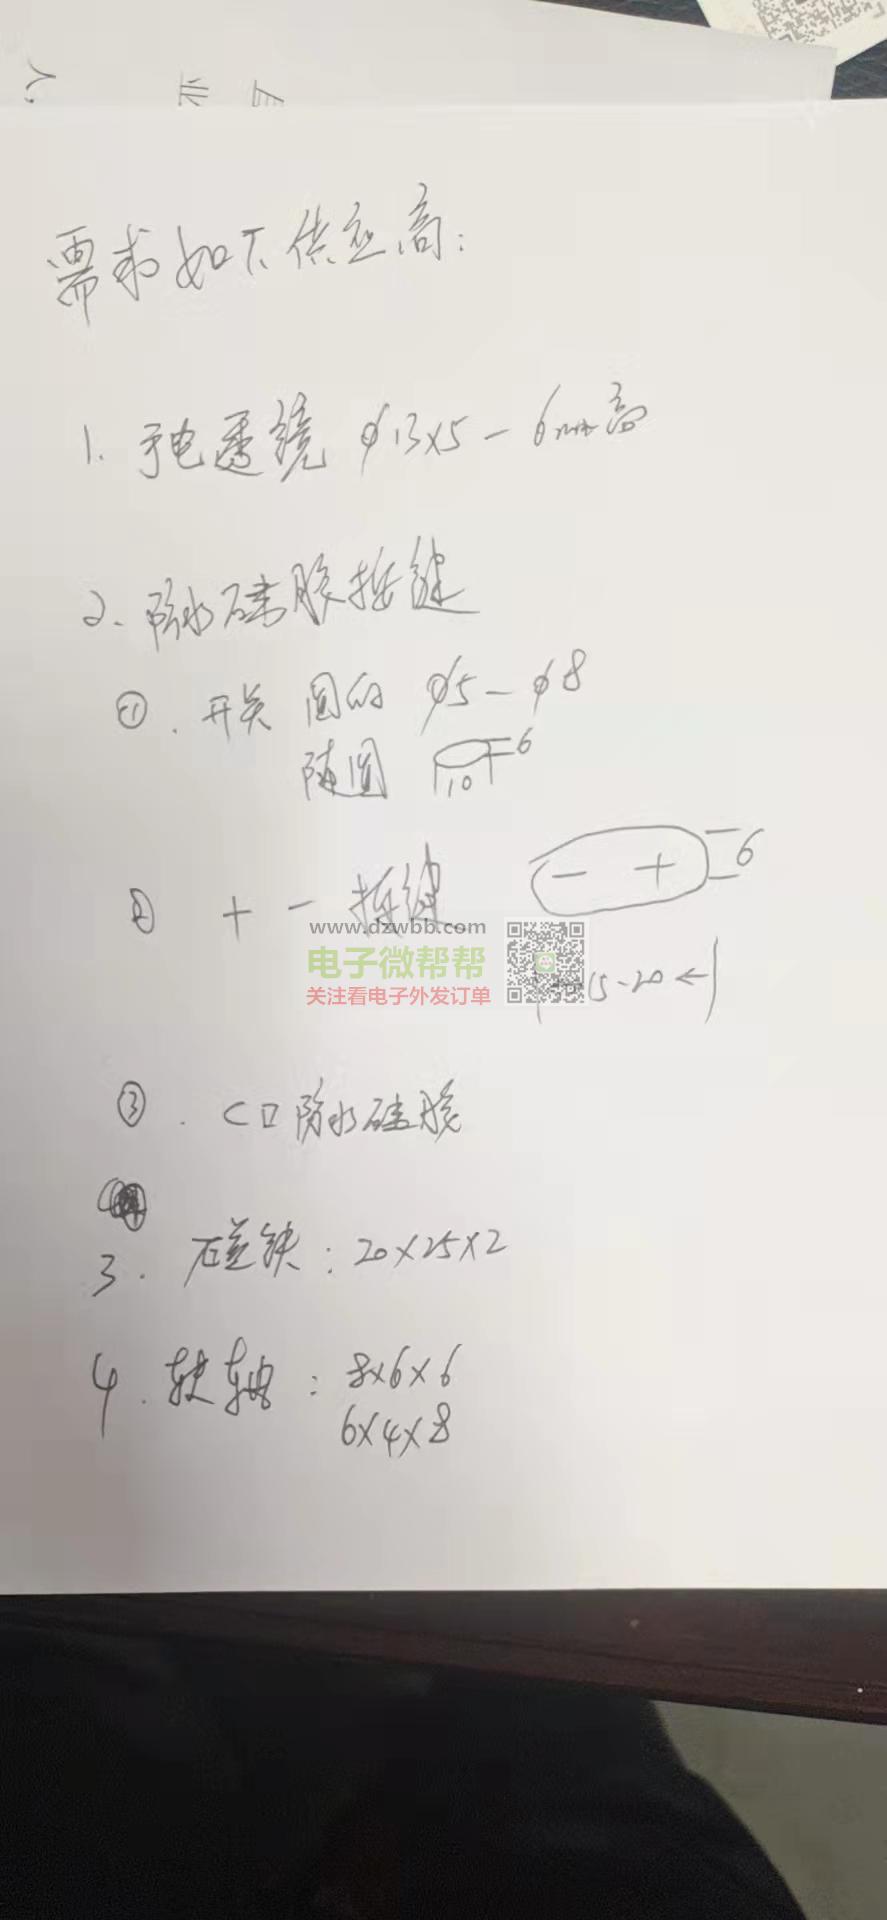 需求如下供应商:
1. 手电透镜 φ13×5-6mm高
2. 防水硅胶按键
① . 开关 圆的 φ5-φ8
随圆 10 6
② + - 按键 - + 6
www.dzwbb.com
电子微帮帮
关注看电子外发订单
15-20
③ . C口防水硅胶
3. 磁铁:20×25×2
4. 转轴:8×6×6
6×4×8